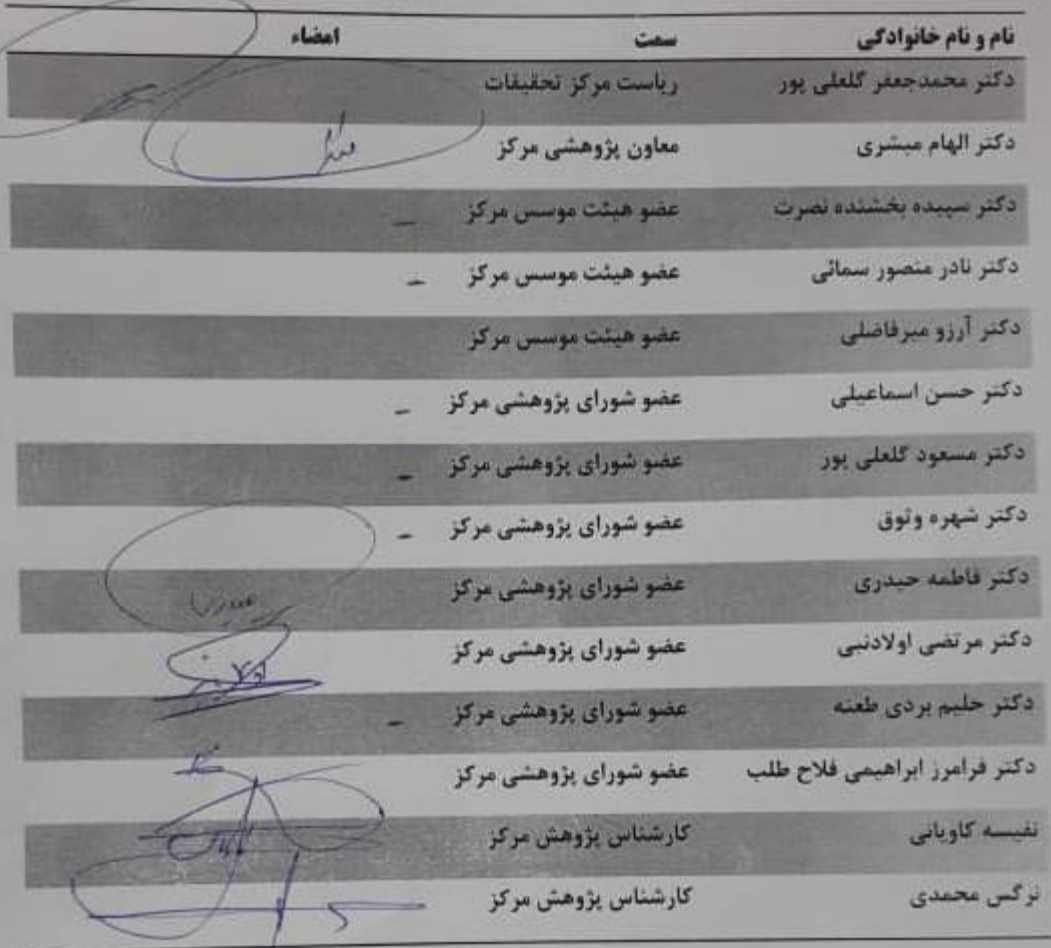 نام و نام خانوادگی سمت امضاء
دکتر محمدجعفر گلعلی پور ریاست مرکز تحقیقات
دکتر الهام مبشری معاون پژوهشی مرکز
دکتر سپیده بخشنده نصرت عضو هیئت موسس مرکز –
دکتر نادر منصور سمائی عضو هیئت موسس مرکز –
دکتر آرزو میرفاضلی عضو هیئت موسس مرکز
دکتر حسن اسماعیلی عضو شورای پژوهشی مرکز –
دکتر مسعود گلعلی پور عضو شورای پژوهشی مرکز –
دکتر شهره وثوق عضو شورای پژوهشی مرکز –
دکتر فاطمه حیدری عضو شورای پژوهشی مرکز
دکتر مرتضی اولادنبی عضو شورای پژوهشی مرکز
دکتر حلیم بردی طعنه عضو شورای پژوهشی مرکز –
دکتر فرامرز ابراهیمی فلاح طلب عضو شورای پژوهشی مرکز
نفیسه کاویانی کارشناس پژوهش مرکز
نرگس محمدی کارشناس پژوهش مرکز